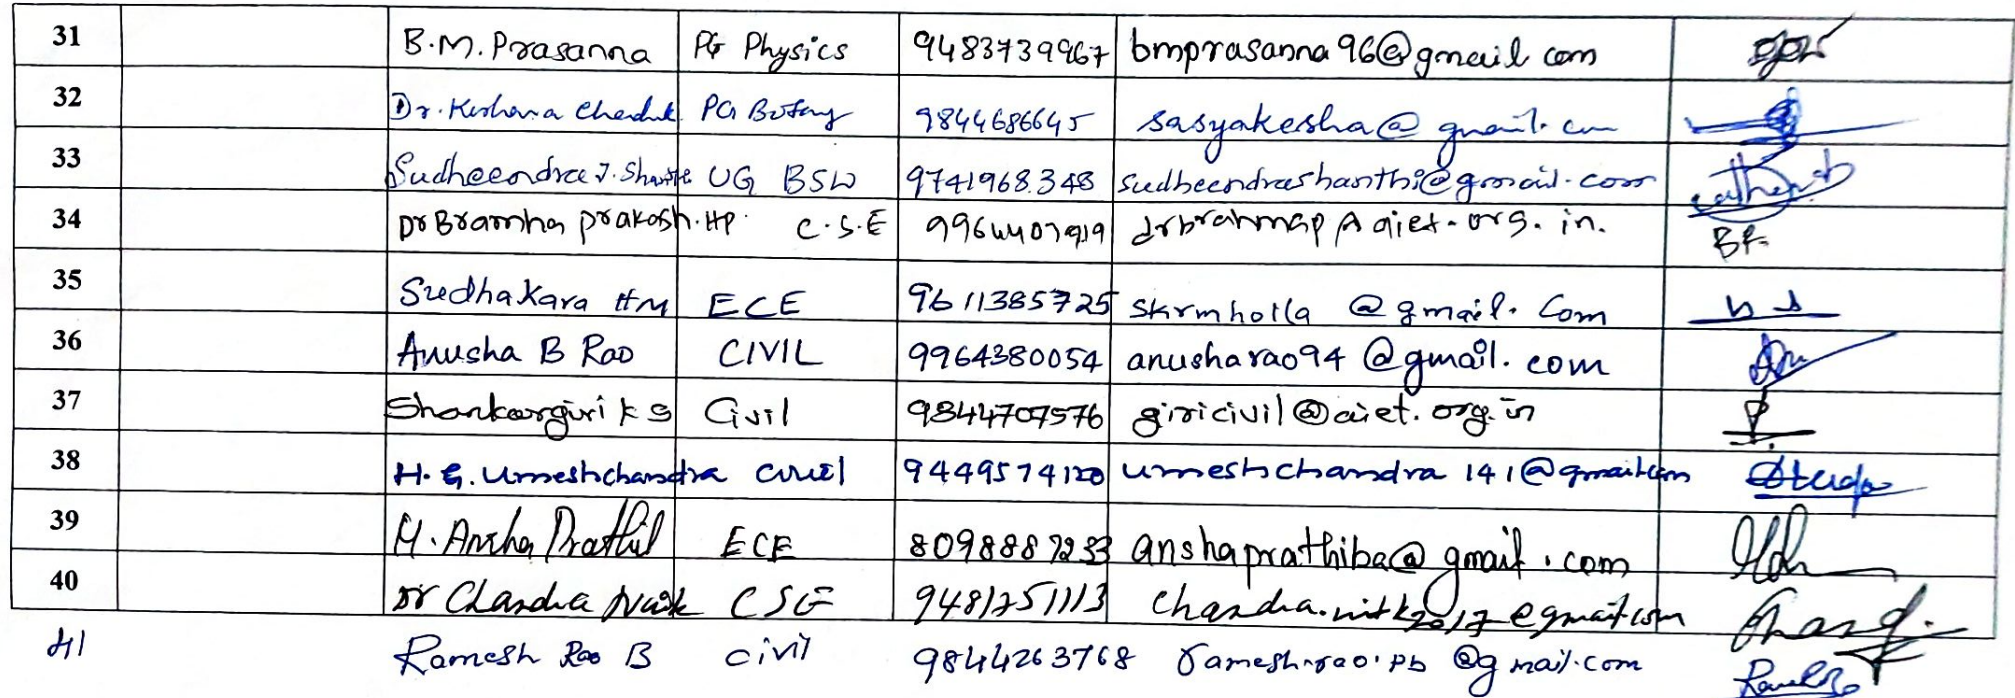 31 B.M. Prasanna PG Physics 9483739967 bmprasanna96@gmail com
32 Dr. Keshava Chandra PG Botany 9844686645 sasyakesha@gmail.com
33 Sudheendra J. UG BSW 9741968348 sudheendrashanthi@gmail.com
34 Dr Bramha prakash.HP. C.S.E drbrahmap A aiet.org.in.
35 Sudhakara HM ECE 9611385725 skrmholla @gmail.com
36 Anusha B Rao CIVIL 9964380054 anusharao94 @gmail.com
37 Shankargiri K S Civil 9844707576 giricivil@aiet.org.in
38 H.G. Umeshchandra civil 9449574120 umeshchandra141@gmail.com
39 H. Ansha ECE anshaprathiba@gmail.com
40 Dr Chandra Naik CSE 9481751113 chandra.nitk2017@gmail.com
41 Ramesh Rao B civil 9844263768 ramesh.rao.pb @gmail.com